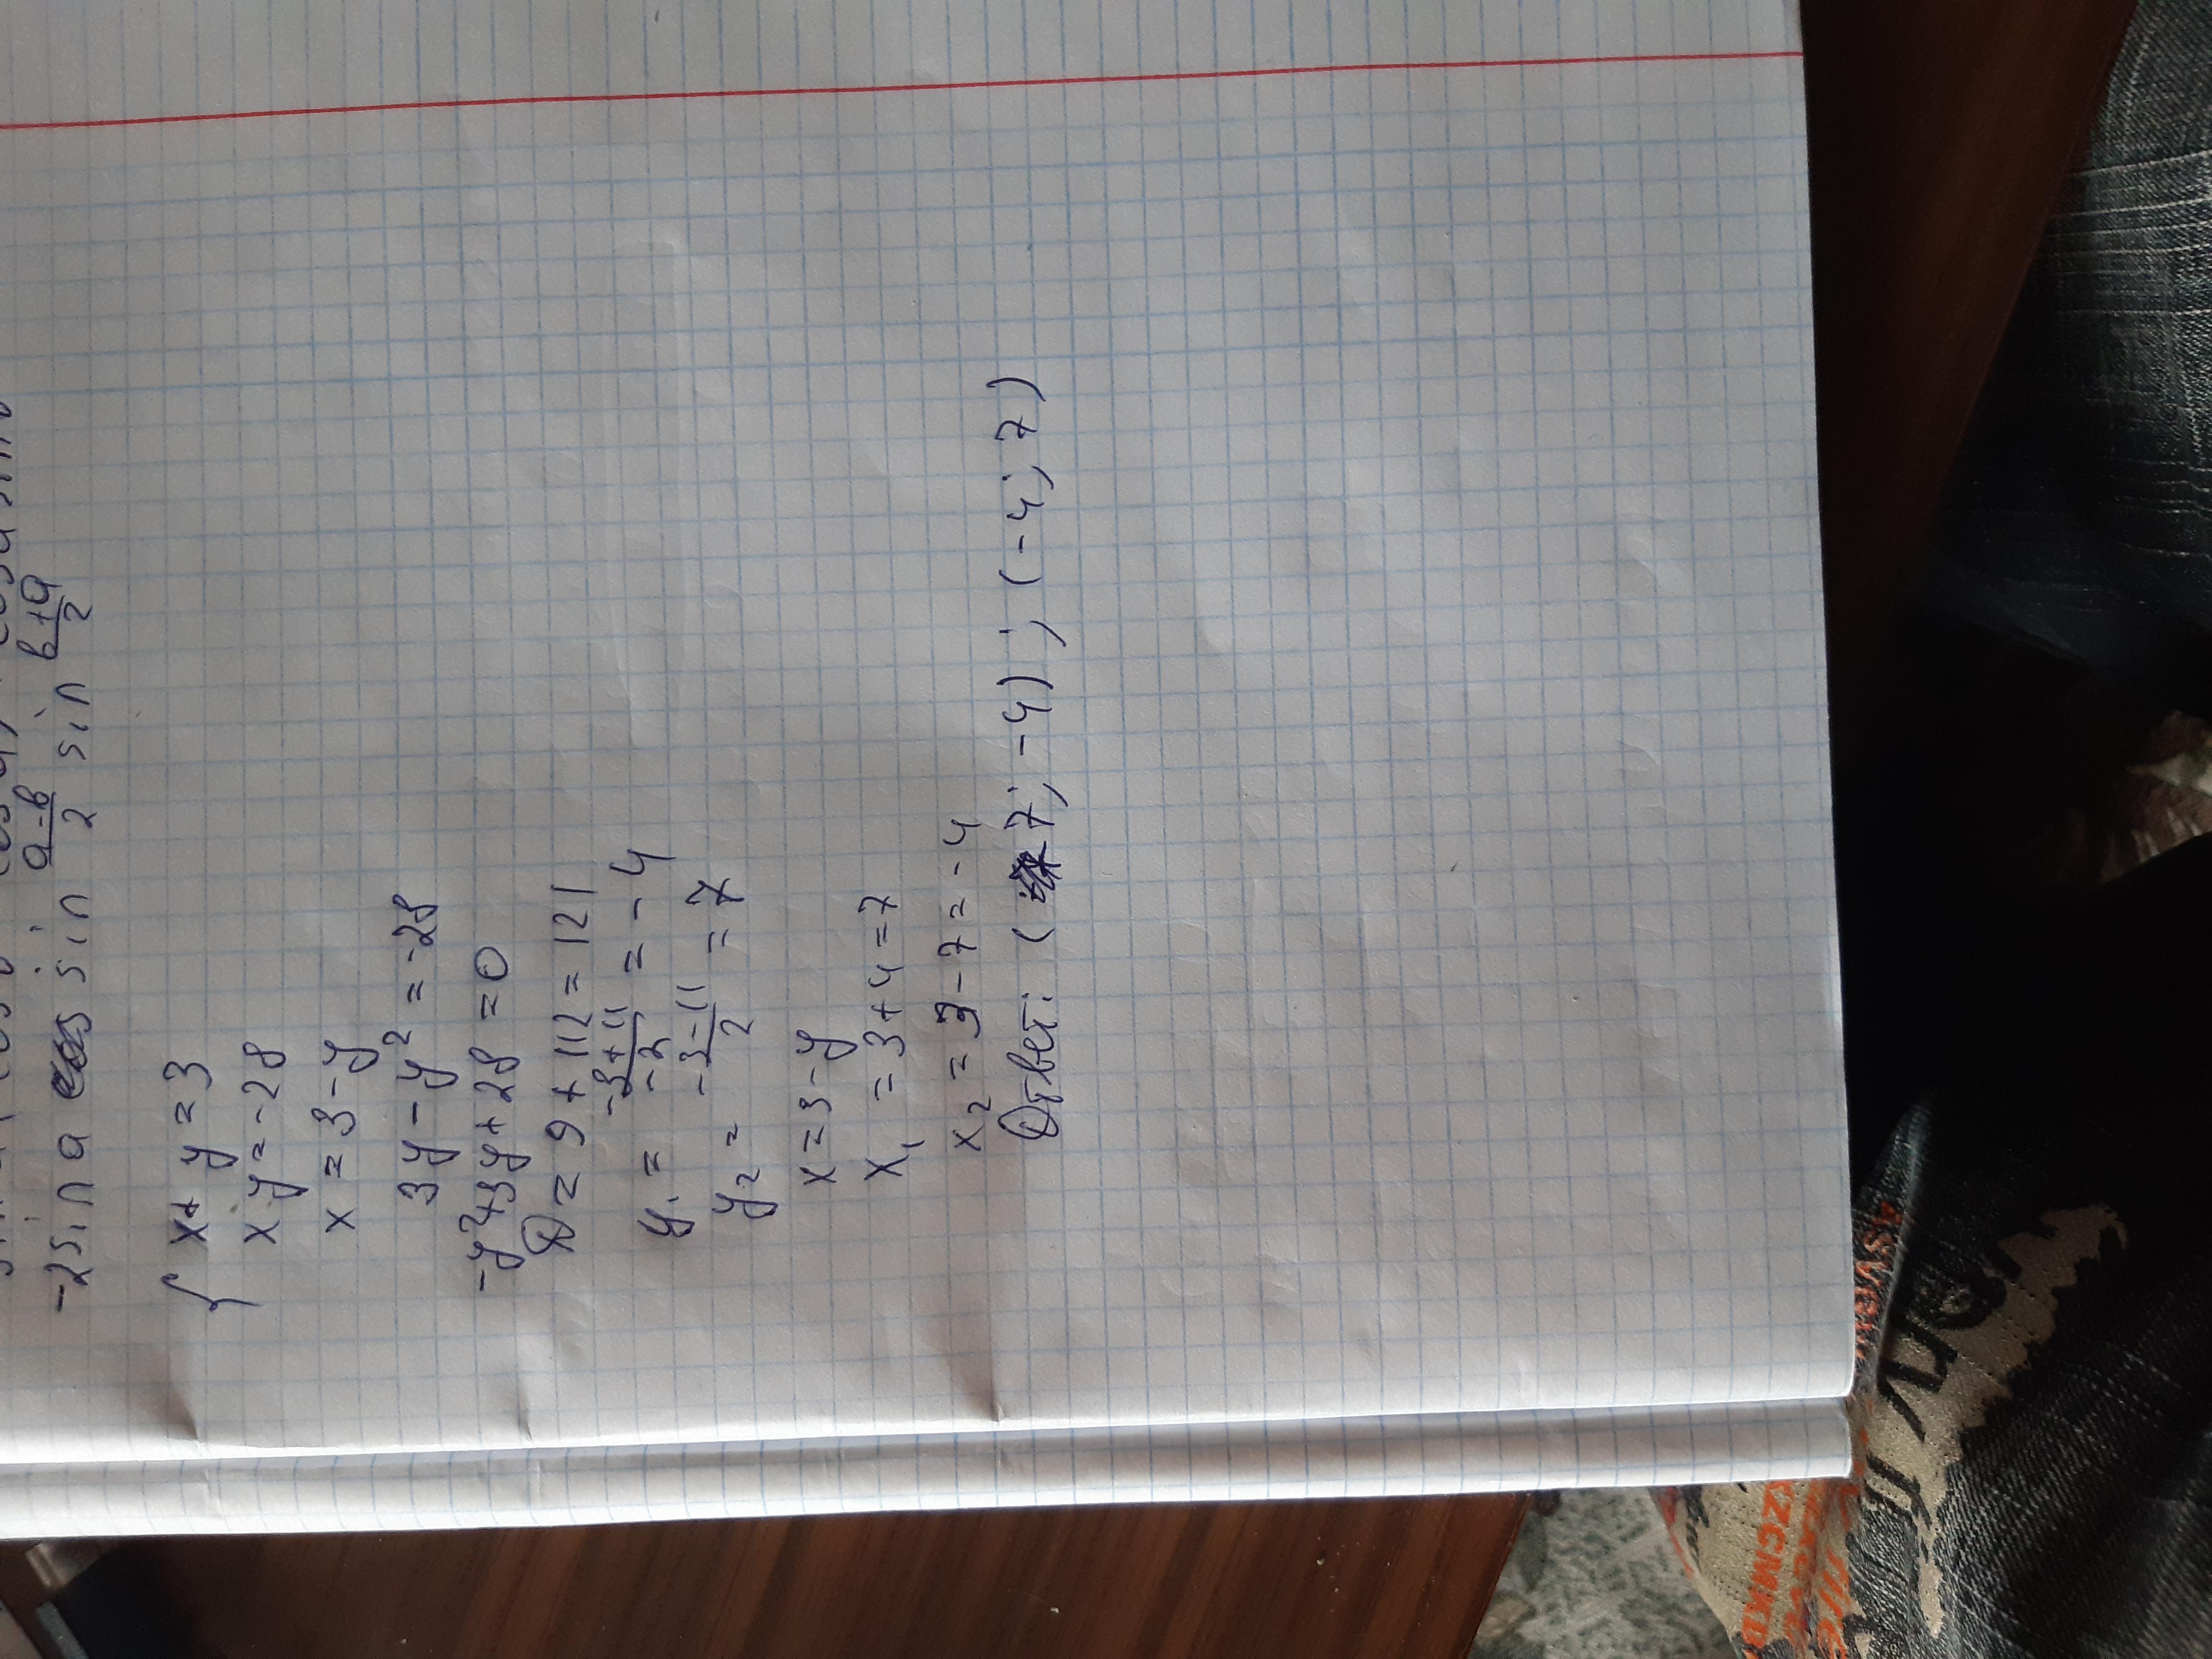 -2sin a sin \frac{a-b}{2} sin \frac{b+a}{2}
{ x+y=3
xy=-28
x=3-y
3y-y²=-28
-y²+3y+28=0
D=9+112=121
y₁=\frac{-3+11}{-2}=-4
y₂=\frac{-3-11}{2}=7
x=3-y
x₁=3+4=7
x₂=3-7=-4
Ответ: (7;-4); (-4;7)